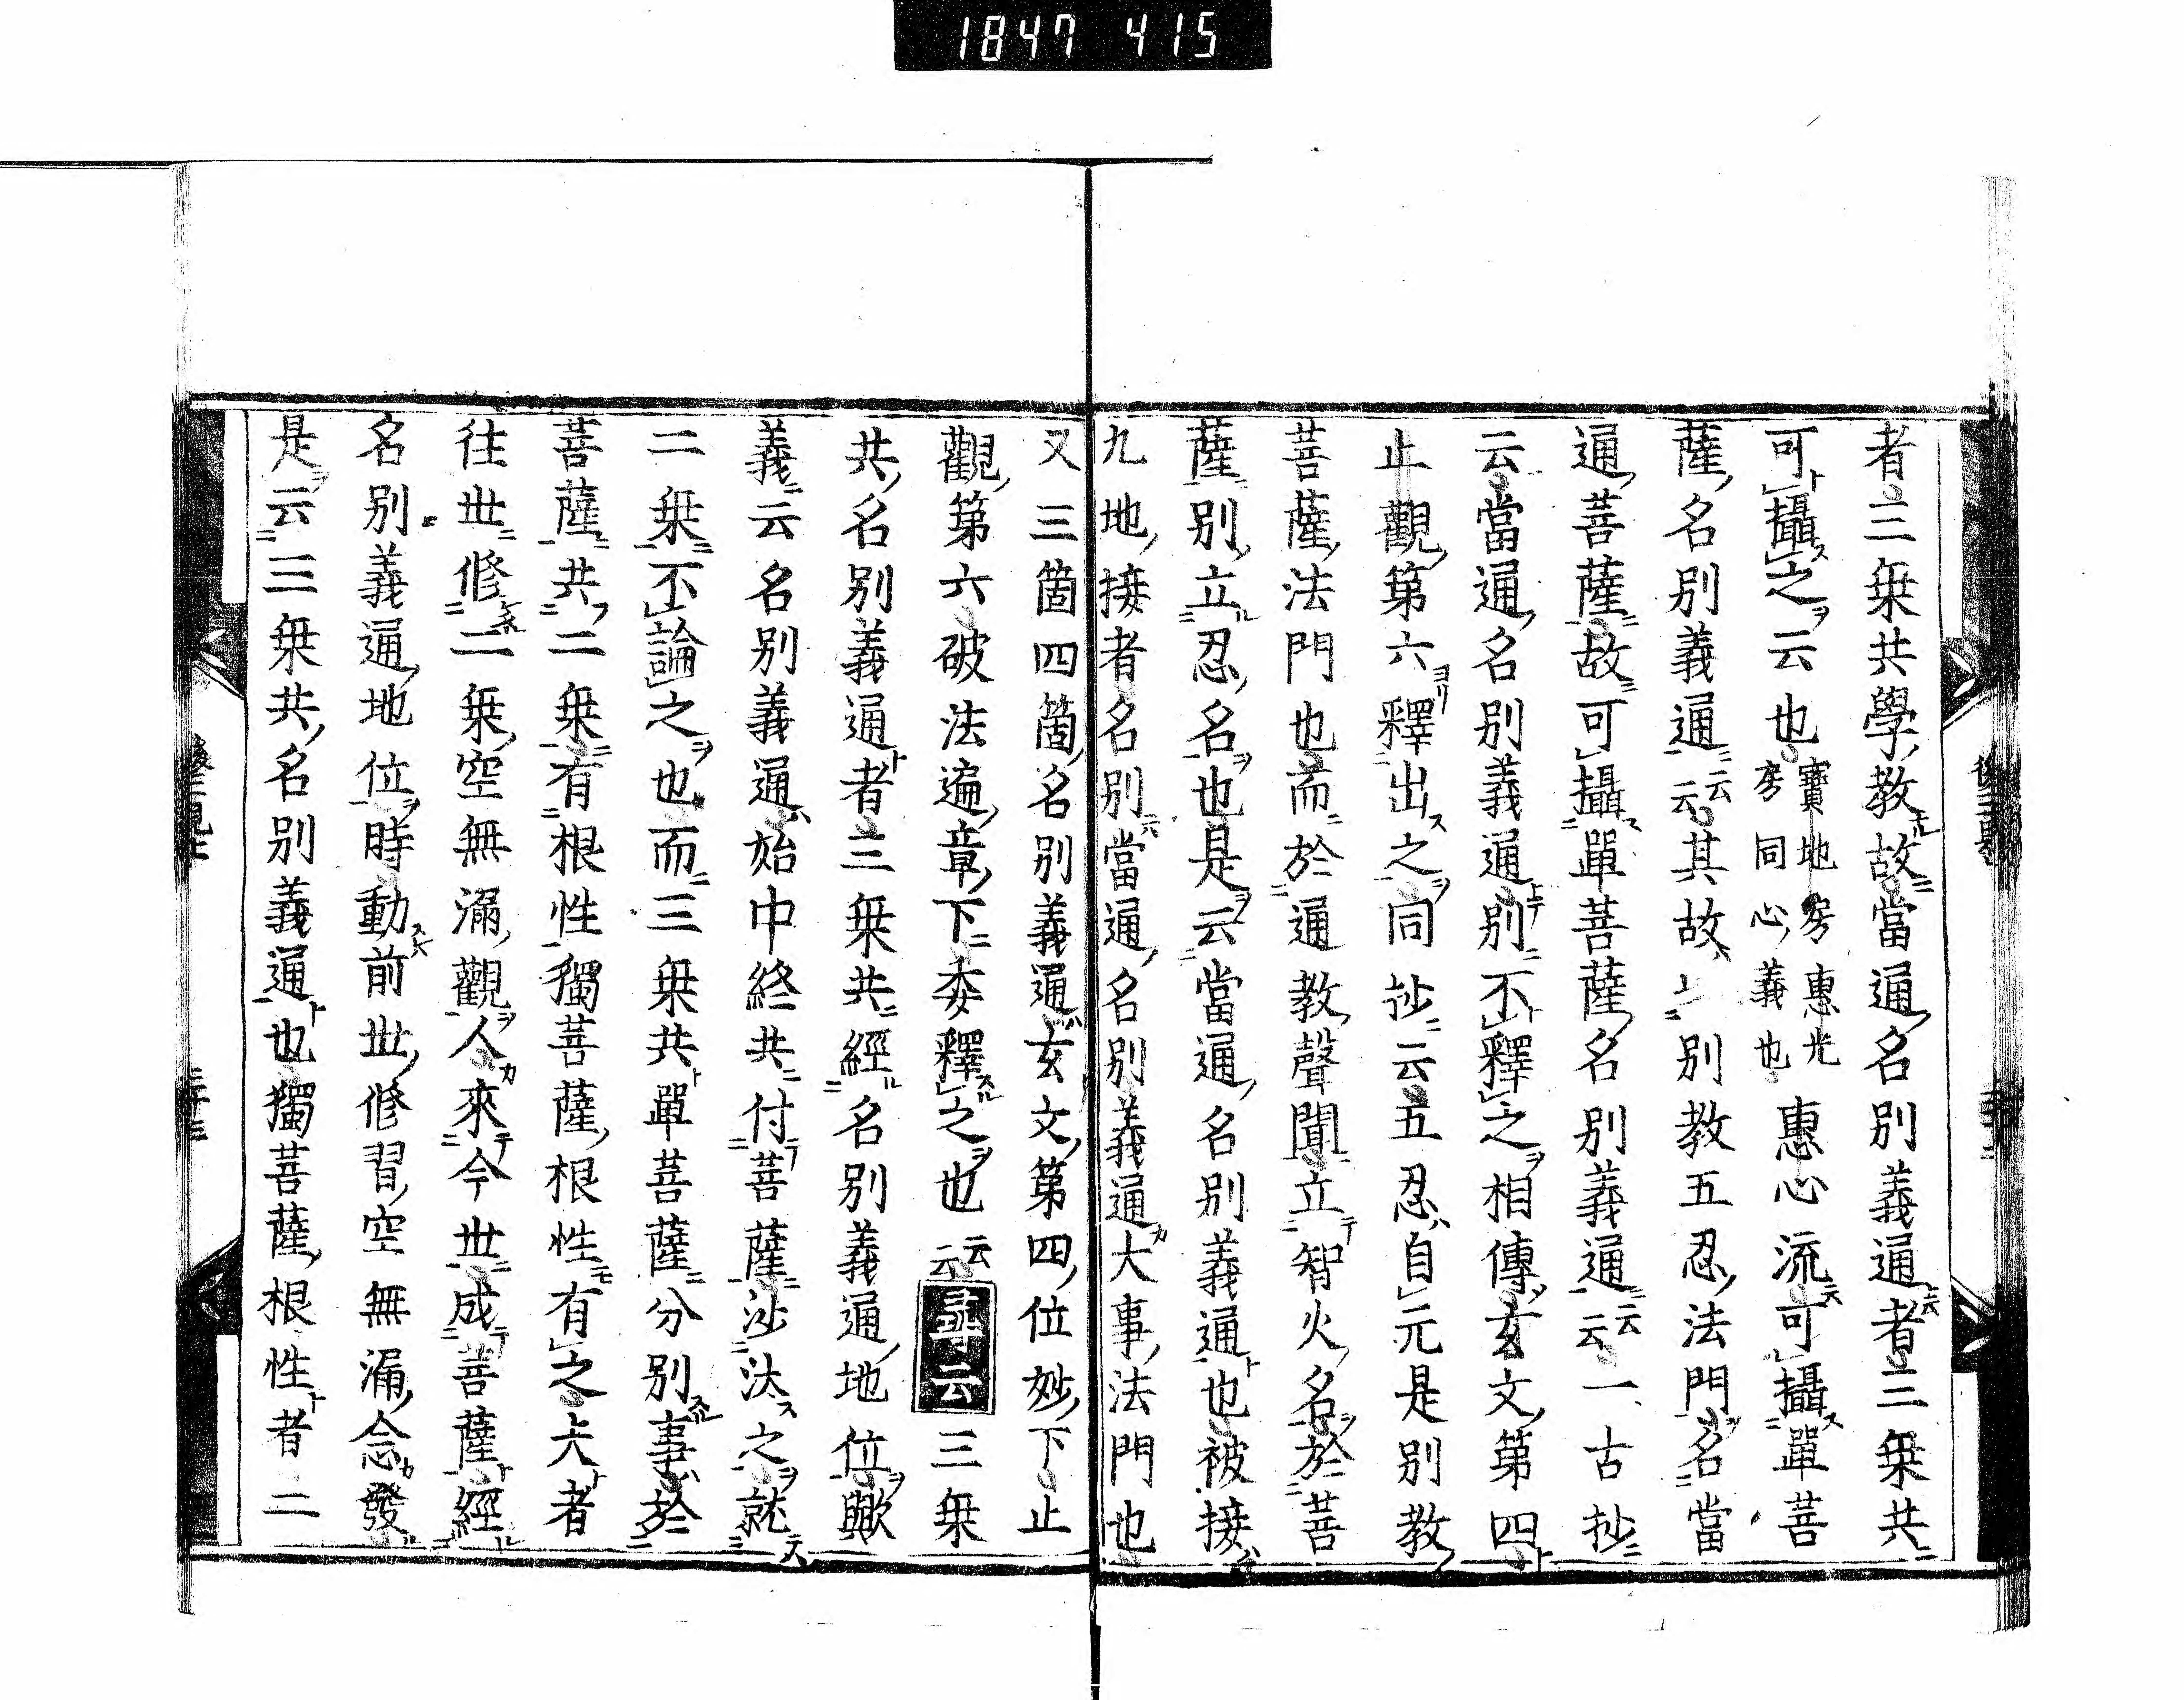 1847 415
者三乗共學教故當通名別義通者三乗共
可攝之云也寶地房惠光房同心義也惠心流可攝單菩
薩名別義通云云其故別教五忍法門名當
通菩薩故可攝單菩薩名別義通云云一古抄
云當通名別義通別不釋之相傳玄文第四
止觀第六釋出之同抄云五忍自元是別教
菩薩法門也而於通教聲聞立智火名於菩
薩別立忍名也是云當通名別義通也被接
九地接者名別當通名別義通大事法門也
又三箇四箇名別義通玄文第四位妙下止
觀第六破法遍章下委釋之也云云尋云三乗
共名別義通者三乗共經名別義通地位歟
義云名別義通始中終共付菩薩沙汰之就
二乗不論之也而三乗共單菩薩分別事於
菩薩共二乗有根性獨菩薩根性有之夫者
往世修二乗空無漏觀人來今世成菩薩經
名別義通地位時動前世修習空無漏念發
是云三乗共名別義通也獨菩薩根性者二